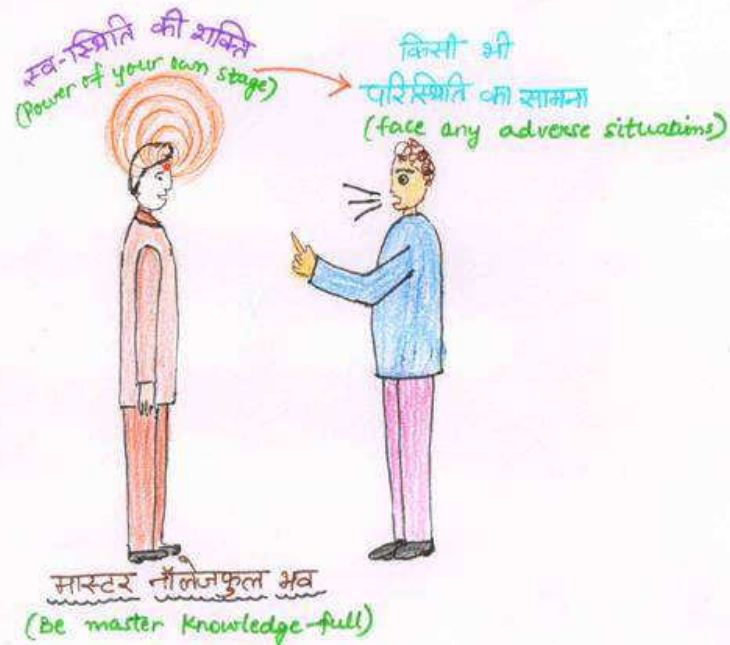 स्व-स्थिति की शक्ति
(Power of your own stage)
किसी भी
परिस्थिति का सामना
(face any adverse situations)
मास्टर नॉलेजफुल भव
(Be master Knowledge-full)